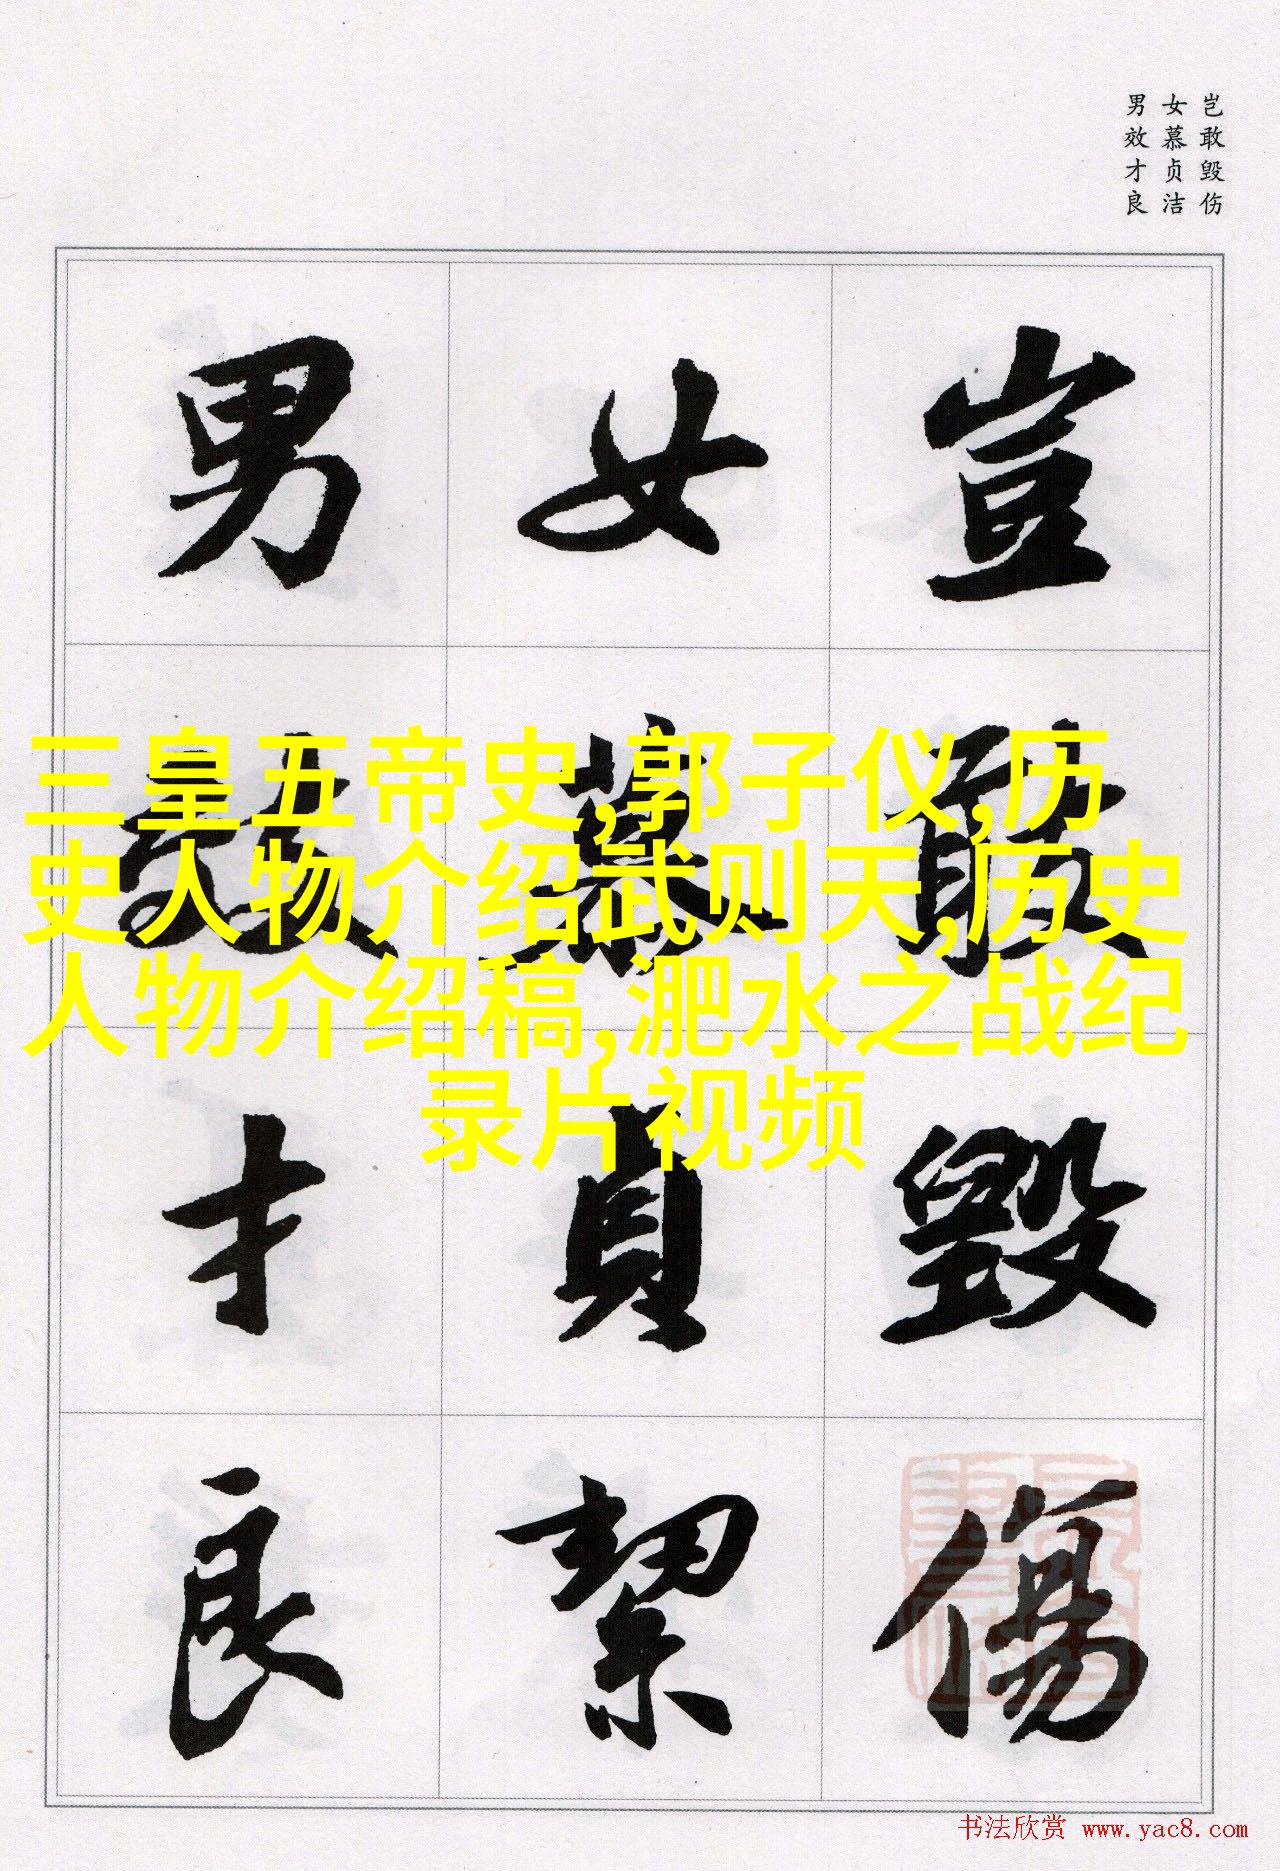 岂敢毁伤
女慕贞洁
男效才良
豈敢毀傷
女慕貞絜
男效才良
三皇五帝史,郭子仪,历
史人物介绍武则天,历史
人物介绍稿,淝水之战纪
录片视频
书法欣赏 www.yac8.com